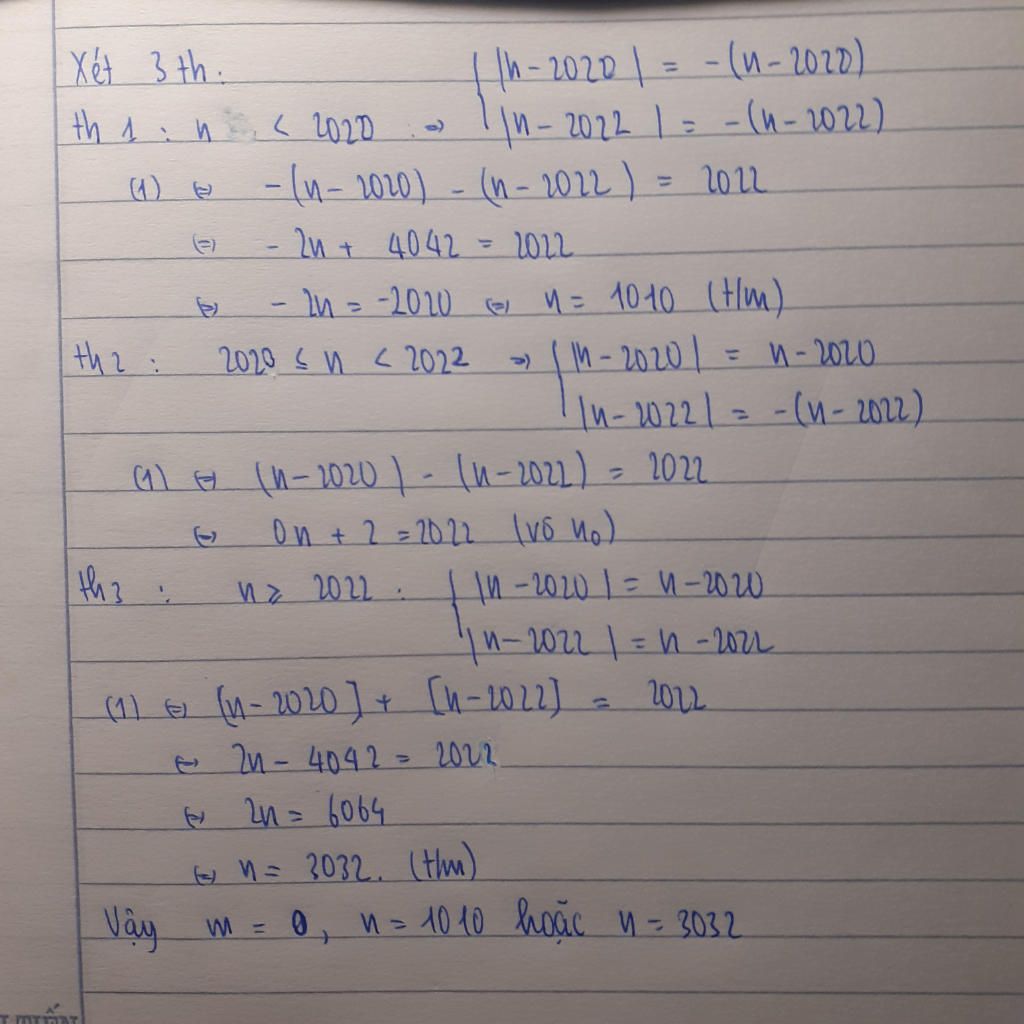 Xét 3 th: { |n - 2020| = -(n - 2020)
th 1 : n < 2020 => |n - 2022| = -(n - 2022)
(1) <=> -(n - 2020) - (n - 2022) = 2022
<=> - 2n + 4042 = 2022
<=> - 2n = -2020 <=> n = 1010 (t/m)
th2 : 2020 ≤ n < 2022 => { |n - 2020| = n - 2020
|n - 2022| = -(n - 2022)
(1) <=> (n - 2020) - (n - 2022) = 2022
<=> 0n + 2 = 2022 (vô n₀)
th3 : n ≥ 2022 : { |n - 2020| = n - 2020
|n - 2022| = n - 2022
(1) <=> [n - 2020] + [n - 2022] = 2022
<=> 2n - 4042 = 2022
<=> 2n = 6064
<=> n = 3032. (t/m)
Vậy m = 0, n = 1010 hoặc n = 3032